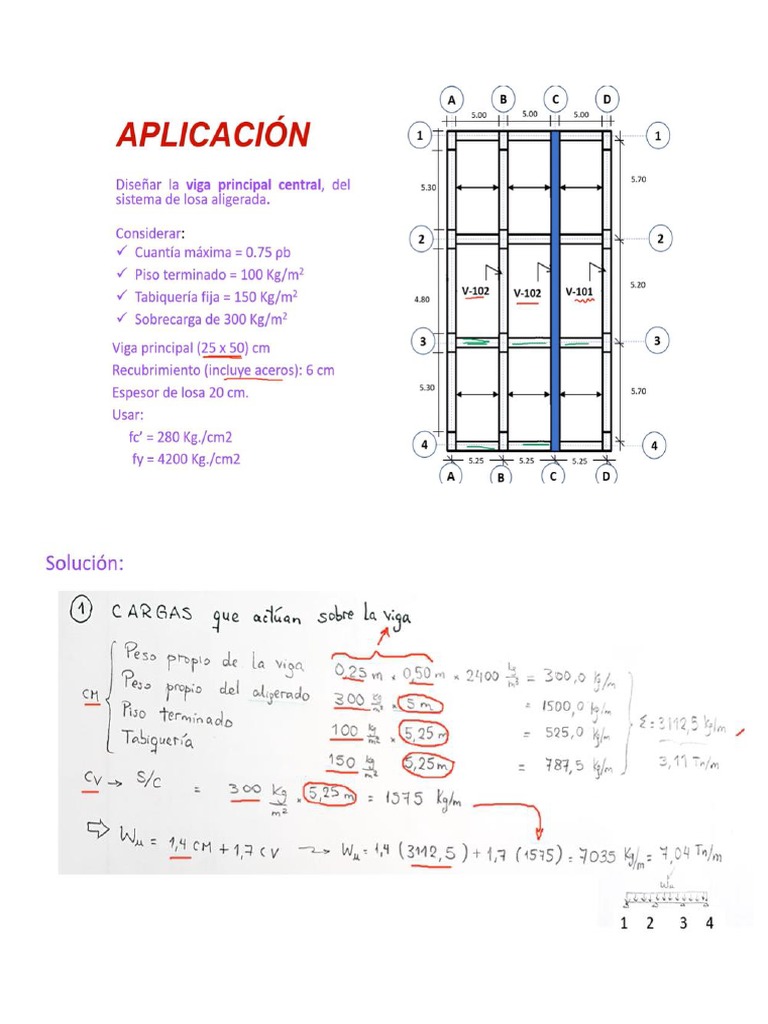 APLICACIÓN
Diseñar la viga principal central, del
sistema de losa aligerada.
Considerar:
✓ Cuantía máxima = 0.75 ρb
✓ Piso terminado = 100 Kg/m²
✓ Tabiquería fija = 150 Kg/m²
✓ Sobrecarga de 300 Kg/m²
Viga principal (25 x 50) cm
Recubrimiento (incluye aceros): 6 cm
Espesor de losa 20 cm.
Usar:
fc' = 280 Kg./cm2
fy = 4200 Kg./cm2
A B C D
5.00 5.00 5.00
1 1
5.30 5.70
2 2
V-102 V-102 V-101
4.80 5.20
3 3
5.30 5.70
4 4
5.25 5.25 5.25
A B C D
Solución:
① CARGAS que actúan sobre la viga
CM
Peso propio de la viga 0,25 m x 0,50 m x 2400 Kg/m³ = 300,0 Kg/m
Peso propio del aligerado 300 Kg/m² x 5 m = 1500,0 Kg/m
Piso terminado 100 Kg/m² x 5,25 m = 525,0 Kg/m
Tabiquería 150 Kg/m² 5,25 m = 787,5 Kg/m
Σ = 3112,5 Kg/m
3,11 Tn/m
CV → S/C = 300 Kg/m² x 5,25 m = 1575 Kg/m
⇒ Wu = 1,4 CM + 1,7 CV → Wu = 1,4 (3112,5) + 1,7 (1575) = 7035 Kg/m = 7,04 Tn/m
Wu
1 2 3 4